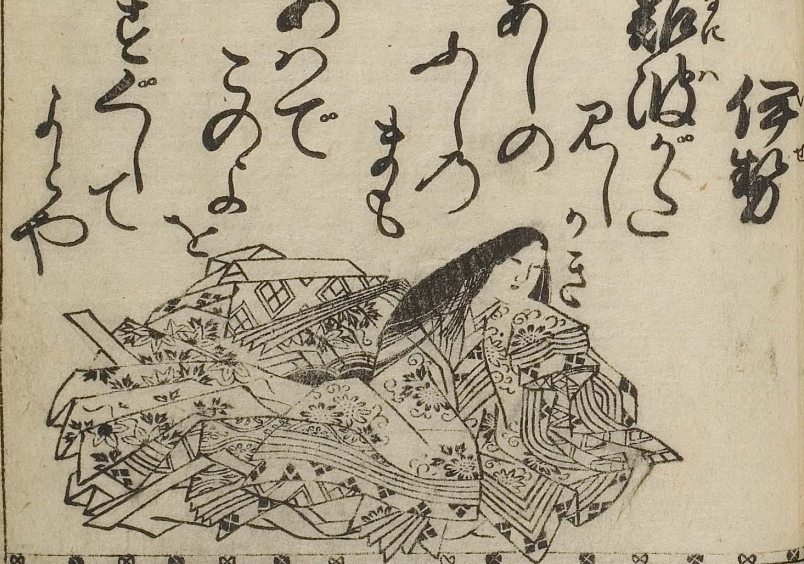 伊勢
難波がた
見じ
かき
あしの
ふし乃
まも
あハで
このよ
を
すぐして
よとや